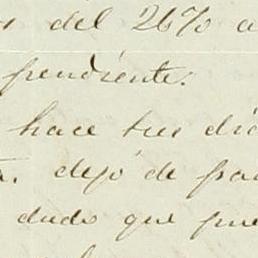 del 26% a
pendiente.
hace tres día
dejó de pa
dudo que pue